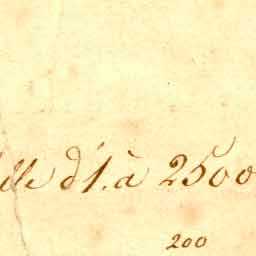 elle d'1. à 2500
200